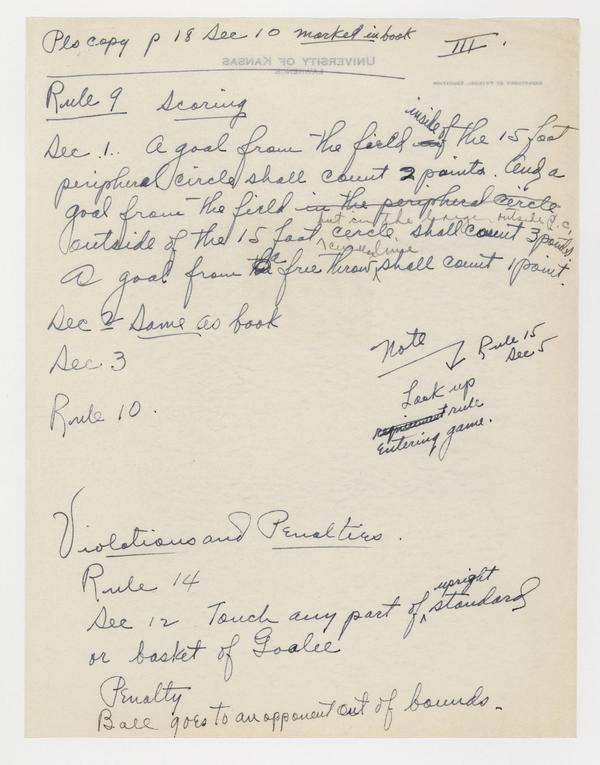 Pls copy p 18 Sec 10 marked in book III.
UNIVERSITY OF KANSAS
LAWRENCE
DEPARTMENT OF PHYSICAL EDUCATION
Rule 9 Scoring
inside
Sec. 1.. A goal from the field of the 15 foot
peripheral circle shall count 2 points. And a
goal from the field in the peripheral circle
but in the outside P.C.
outside of the 15 foot circle shall count 3 points.
A goal from a free throw shall count 1 point.
Sec 2 - Same as book
Sec 3
Note Rule 15
Sec 5
Rule 10.
Look up
requirement rule
Entering game.
Violations and Penalties.
Rule 14
upright
Sec 12 Touch any part of standard
or basket of Goalee
Penalty
Ball goes to an opponent out of bounds.